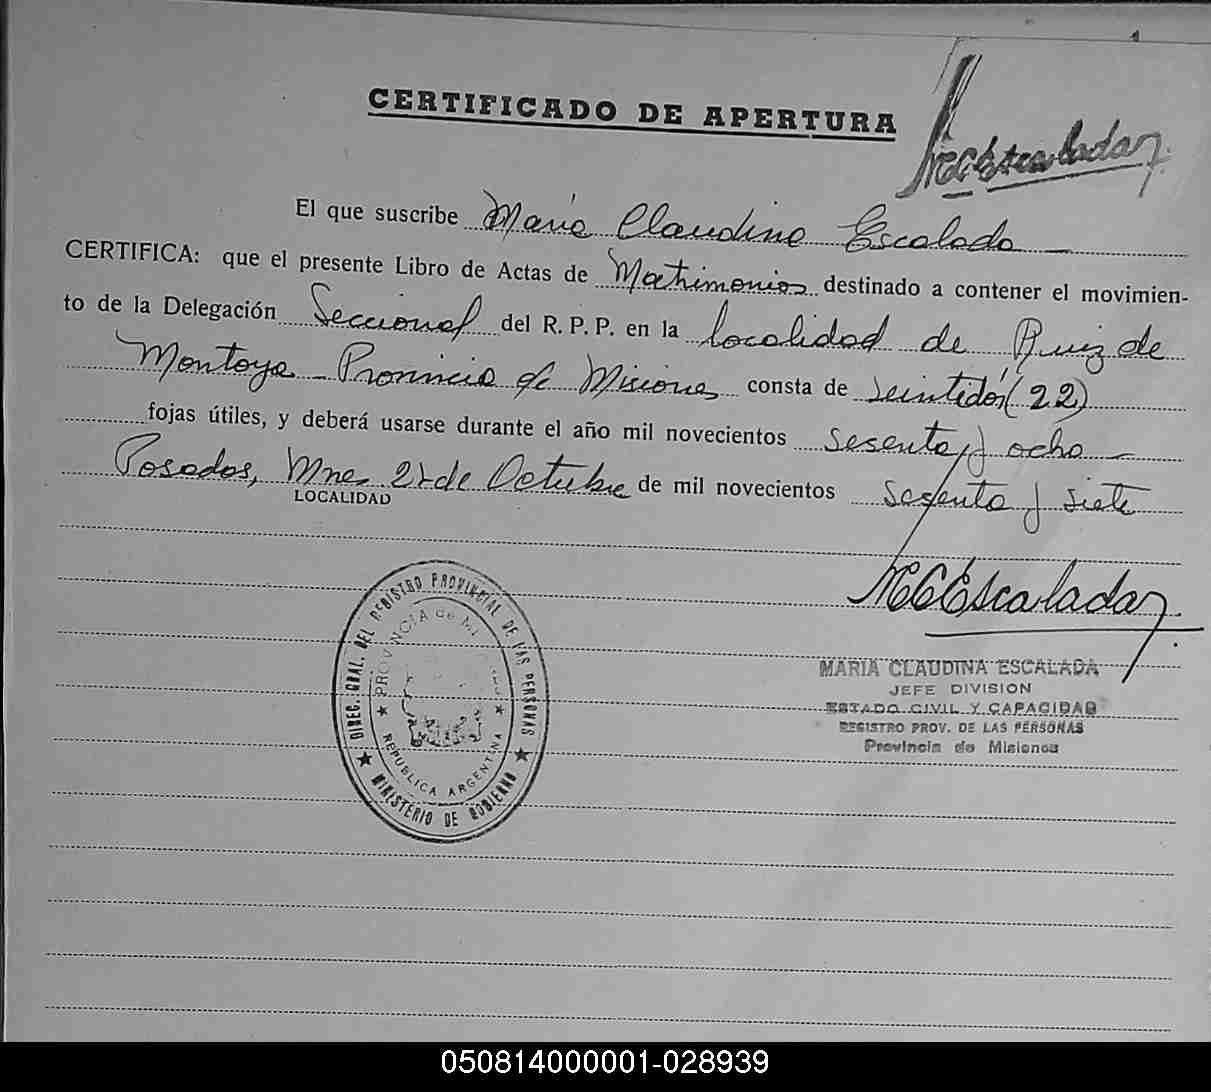 1
CERTIFICADO DE APERTURA
MCEscalada
El que suscribe Maria Claudina Escalada
CERTIFICA: que el presente Libro de Actas de Matrimonios destinado a contener el movimien-
to de la Delegación Seccional del R. P. P. en la localidad de Ruiz de
Montoya - Provincia de Misiones consta de veintidós (22)
fojas útiles, y deberá usarse durante el año mil novecientos sesenta y ocho
Posadas, Mnes 27 de Octubre de mil novecientos sesenta y siete
LOCALIDAD
MCEscalada
DIREC. GRAL. DEL REGISTRO PROVINCIAL DE LAS PERSONAS
PROVINCIA de MISIONES
REPUBLICA ARGENTINA
MINISTERIO DE GOBIERNO
MARIA CLAUDINA ESCALADA
JEFE DIVISION
ESTADO CIVIL Y CAPACIDAD
REGISTRO PROV. DE LAS PERSONAS
Provincia de Misiones
050814000001-028939